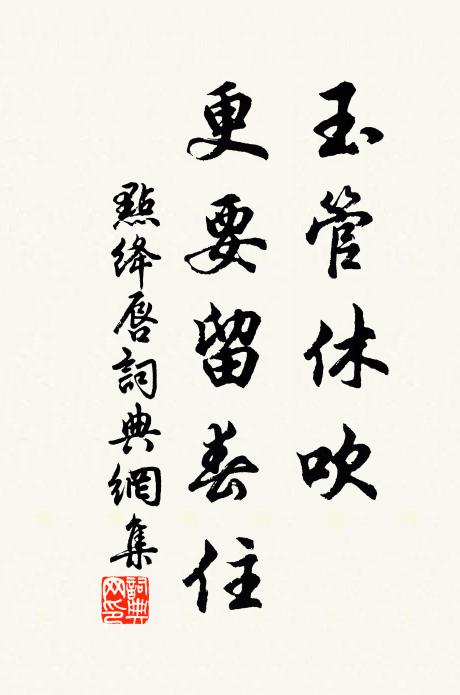 玉管休吹
更要留春住
點绛唇詞典網集
詞典网印